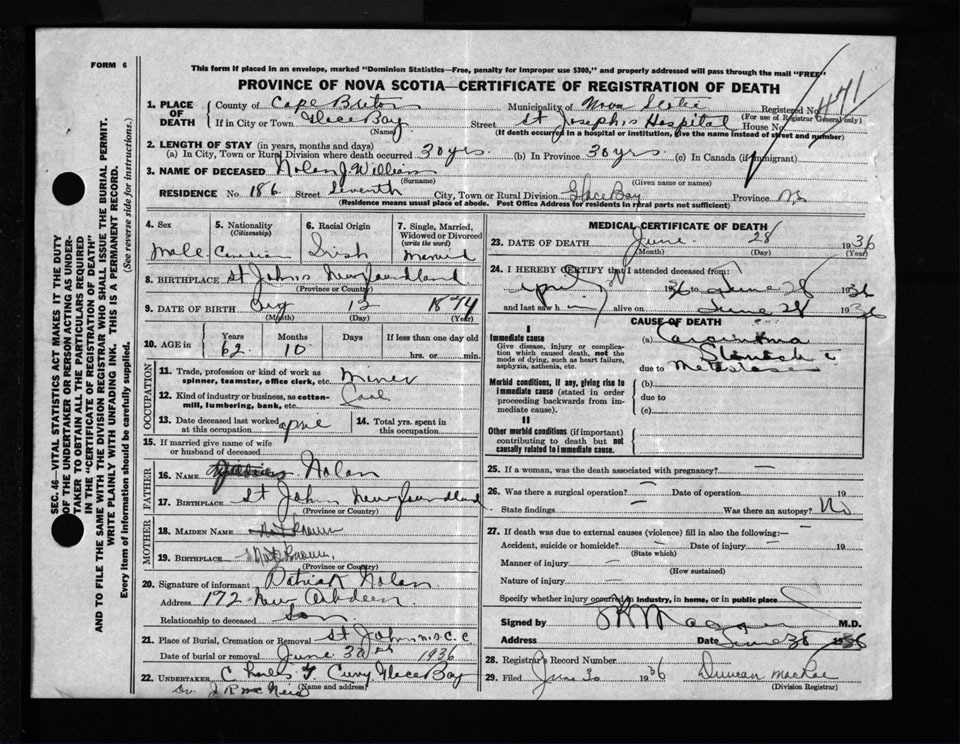 FORM 6
This form if placed in an envelope, marked "Dominion Statistics—Free, penalty for improper use $300," and properly addressed will pass through the mail "FREE"
PROVINCE OF NOVA SCOTIA—CERTIFICATE OF REGISTRATION OF DEATH
471
1. PLACE OF DEATH County of Cape Breton Municipality of Nova Scotia Registered No.
(For use of Registrar General only)
If in City or Town Glace Bay Street St Joseph's Hospital House No.
(Name) (If death occurred in a hospital or institution, give the name instead of street and number)
2. LENGTH OF STAY (in years, months and days)
(a) In City, Town or Rural Division where death occurred 30 yrs. (b) In Province 30 yrs. (c) In Canada (if immigrant)
3. NAME OF DECEASED Nolan J. William
(Surname) (Given name or names)
RESIDENCE No. 186 Street Seventh City, Town or Rural Division Glace Bay Province NS
(Residence means usual place of abode. Post Office Address for residents in rural parts not sufficient)
4. Sex 5. Nationality (Citizenship) 6. Racial Origin 7. Single, Married, Widowed or Divorced (write the word)
Male Canadian Irish Married
8. BIRTHPLACE St Johns Newfoundland
(Province or Country)
9. DATE OF BIRTH 13 1874
(Month) (Day) (Year)
10. AGE in Years Months Days If less than one day old
62 10 hrs. or min.
OCCUPATION
11. Trade, profession or kind of work as spinner, teamster, office clerk, etc. Miner
12. Kind of industry or business, as cotton-mill, lumbering, bank, etc. Coal
13. Date deceased last worked at this occupation 14. Total yrs. spent in this occupation
15. If married give name of wife or husband of deceased
FATHER
16. NAME Nolan
17. BIRTHPLACE St Johns Newfoundland
(Province or Country)
MOTHER
18. MAIDEN NAME Not Known
19. BIRTHPLACE Not Known
(Province or Country)
20. Signature of informant Patrick Nolan
Address 172 New Aberdeen
Relationship to deceased Son
21. Place of Burial, Cremation or Removal St Johns
Date of burial or removal June 30 1936
22. UNDERTAKER Charles F Curry Glace Bay
(Name and address)
MEDICAL CERTIFICATE OF DEATH
23. DATE OF DEATH June 28 1936
(Month) (Day) (Year)
24. I HEREBY CERTIFY that I attended deceased from:
April 1936 to June 28 1936
and last saw him alive on June 28 1936
CAUSE OF DEATH
I
Immediate cause
Give disease, injury or complication which caused death, not the mode of dying, such as heart failure, asphyxia, asthenia, etc.
(a) Carcinoma Stomach c
due to Metastases
Morbid conditions, if any, giving rise to immediate cause (stated in order proceeding backwards from immediate cause).
(b)
due to
(c)
II
Other morbid conditions (if important) contributing to death but not causally related to immediate cause.
25. If a woman, was the death associated with pregnancy? —
26. Was there a surgical operation? — Date of operation 19
State findings — Was there an autopsy? No
27. If death was due to external causes (violence) fill in also the following:—
Accident, suicide or homicide? — Date of injury — 19
(State which)
Manner of injury —
(How sustained)
Nature of injury —
Specify whether injury occurred in industry, in home, or in public place
Signed by M.D.
Address Date June 1936
28. Registrar's Record Number
29. Filed June 30 1936 Duncan MacRae
(Division Registrar)
SEC. 46—VITAL STATISTICS ACT MAKES IT THE DUTY
OF THE UNDERTAKER OR PERSON ACTING AS UNDER-
TAKER TO OBTAIN ALL THE PARTICULARS REQUIRED
IN THE "CERTIFICATE OF REGISTRATION OF DEATH"
AND TO FILE THE SAME WITH THE DIVISION REGISTRAR WHO SHALL ISSUE THE BURIAL PERMIT.
WRITE PLAINLY WITH UNFADING INK. THIS IS A PERMANENT RECORD.
Every item of information should be carefully supplied. (See reverse side for instructions.)